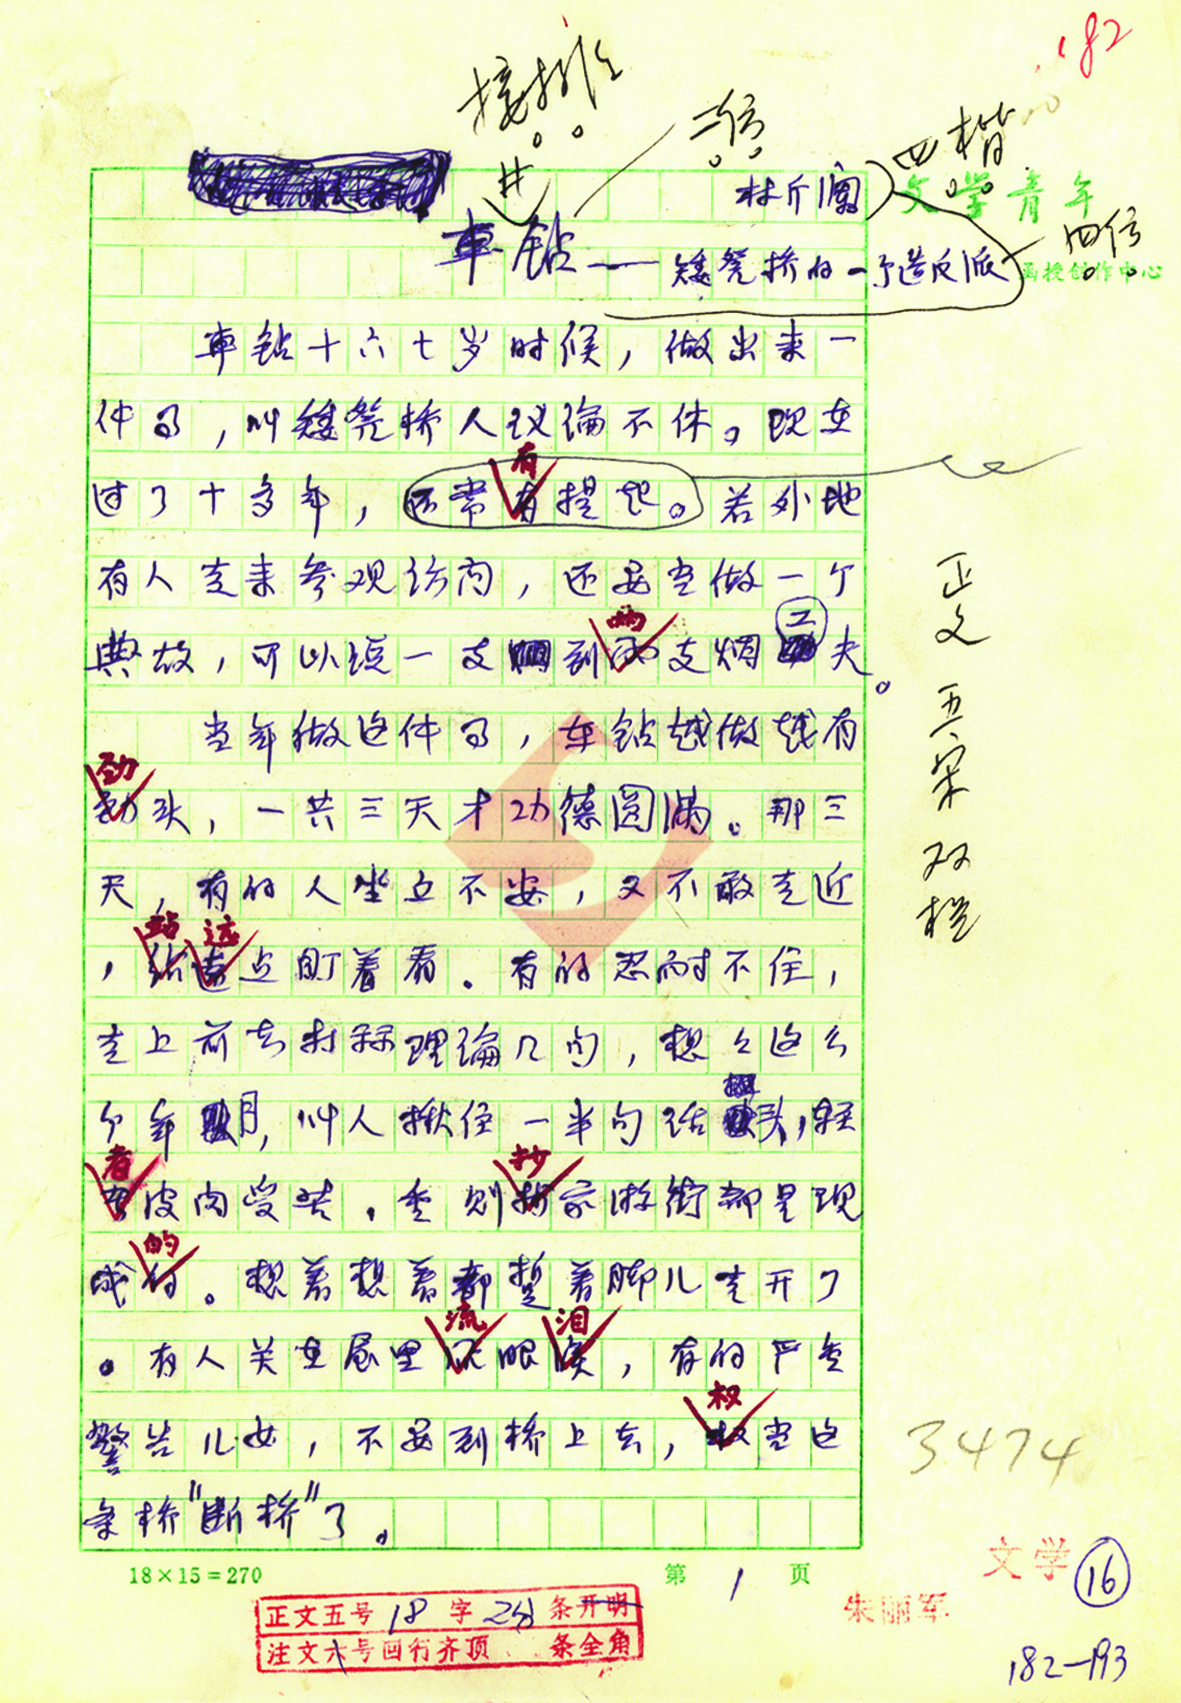 182
接排
二宋
四楷
进
林斤澜
文学青年
四仿
函授创作中心
車钻——矮凳桥的一个造反派
車钻十六七岁时候，做出来一
件事，叫矮凳桥人议论不休。现在
过了十多年，还常有提起。若外地
有
有人走来参观访问，还要当做一个
典故，可以说一支烟到两支烟工夫。
两
当年做这件事，车钻越做越有
劲
劲头，一共三天才功德圆满。那三
天，有的人坐立不安，又不敢走近
站 远
，站远点盯着看。有的忍耐不住，
走上前去打算理论几句，想想这么
个年月，叫人揪住一半句话头，轻
者 抄
者皮肉受苦，重则抄家游街都是现
的
成的。想着想着都踅着脚儿走开了
流 泪
。有人关在屋里流眼泪，有的严重
权
警告儿女，不要到桥上去，权当这
条桥"断桥"了。
正文五宋双栏
3474
18×15=270
第1页
文学
16
朱丽军
正文五号18字2分条开明
注文六号回行齐顶 条全角
182—193